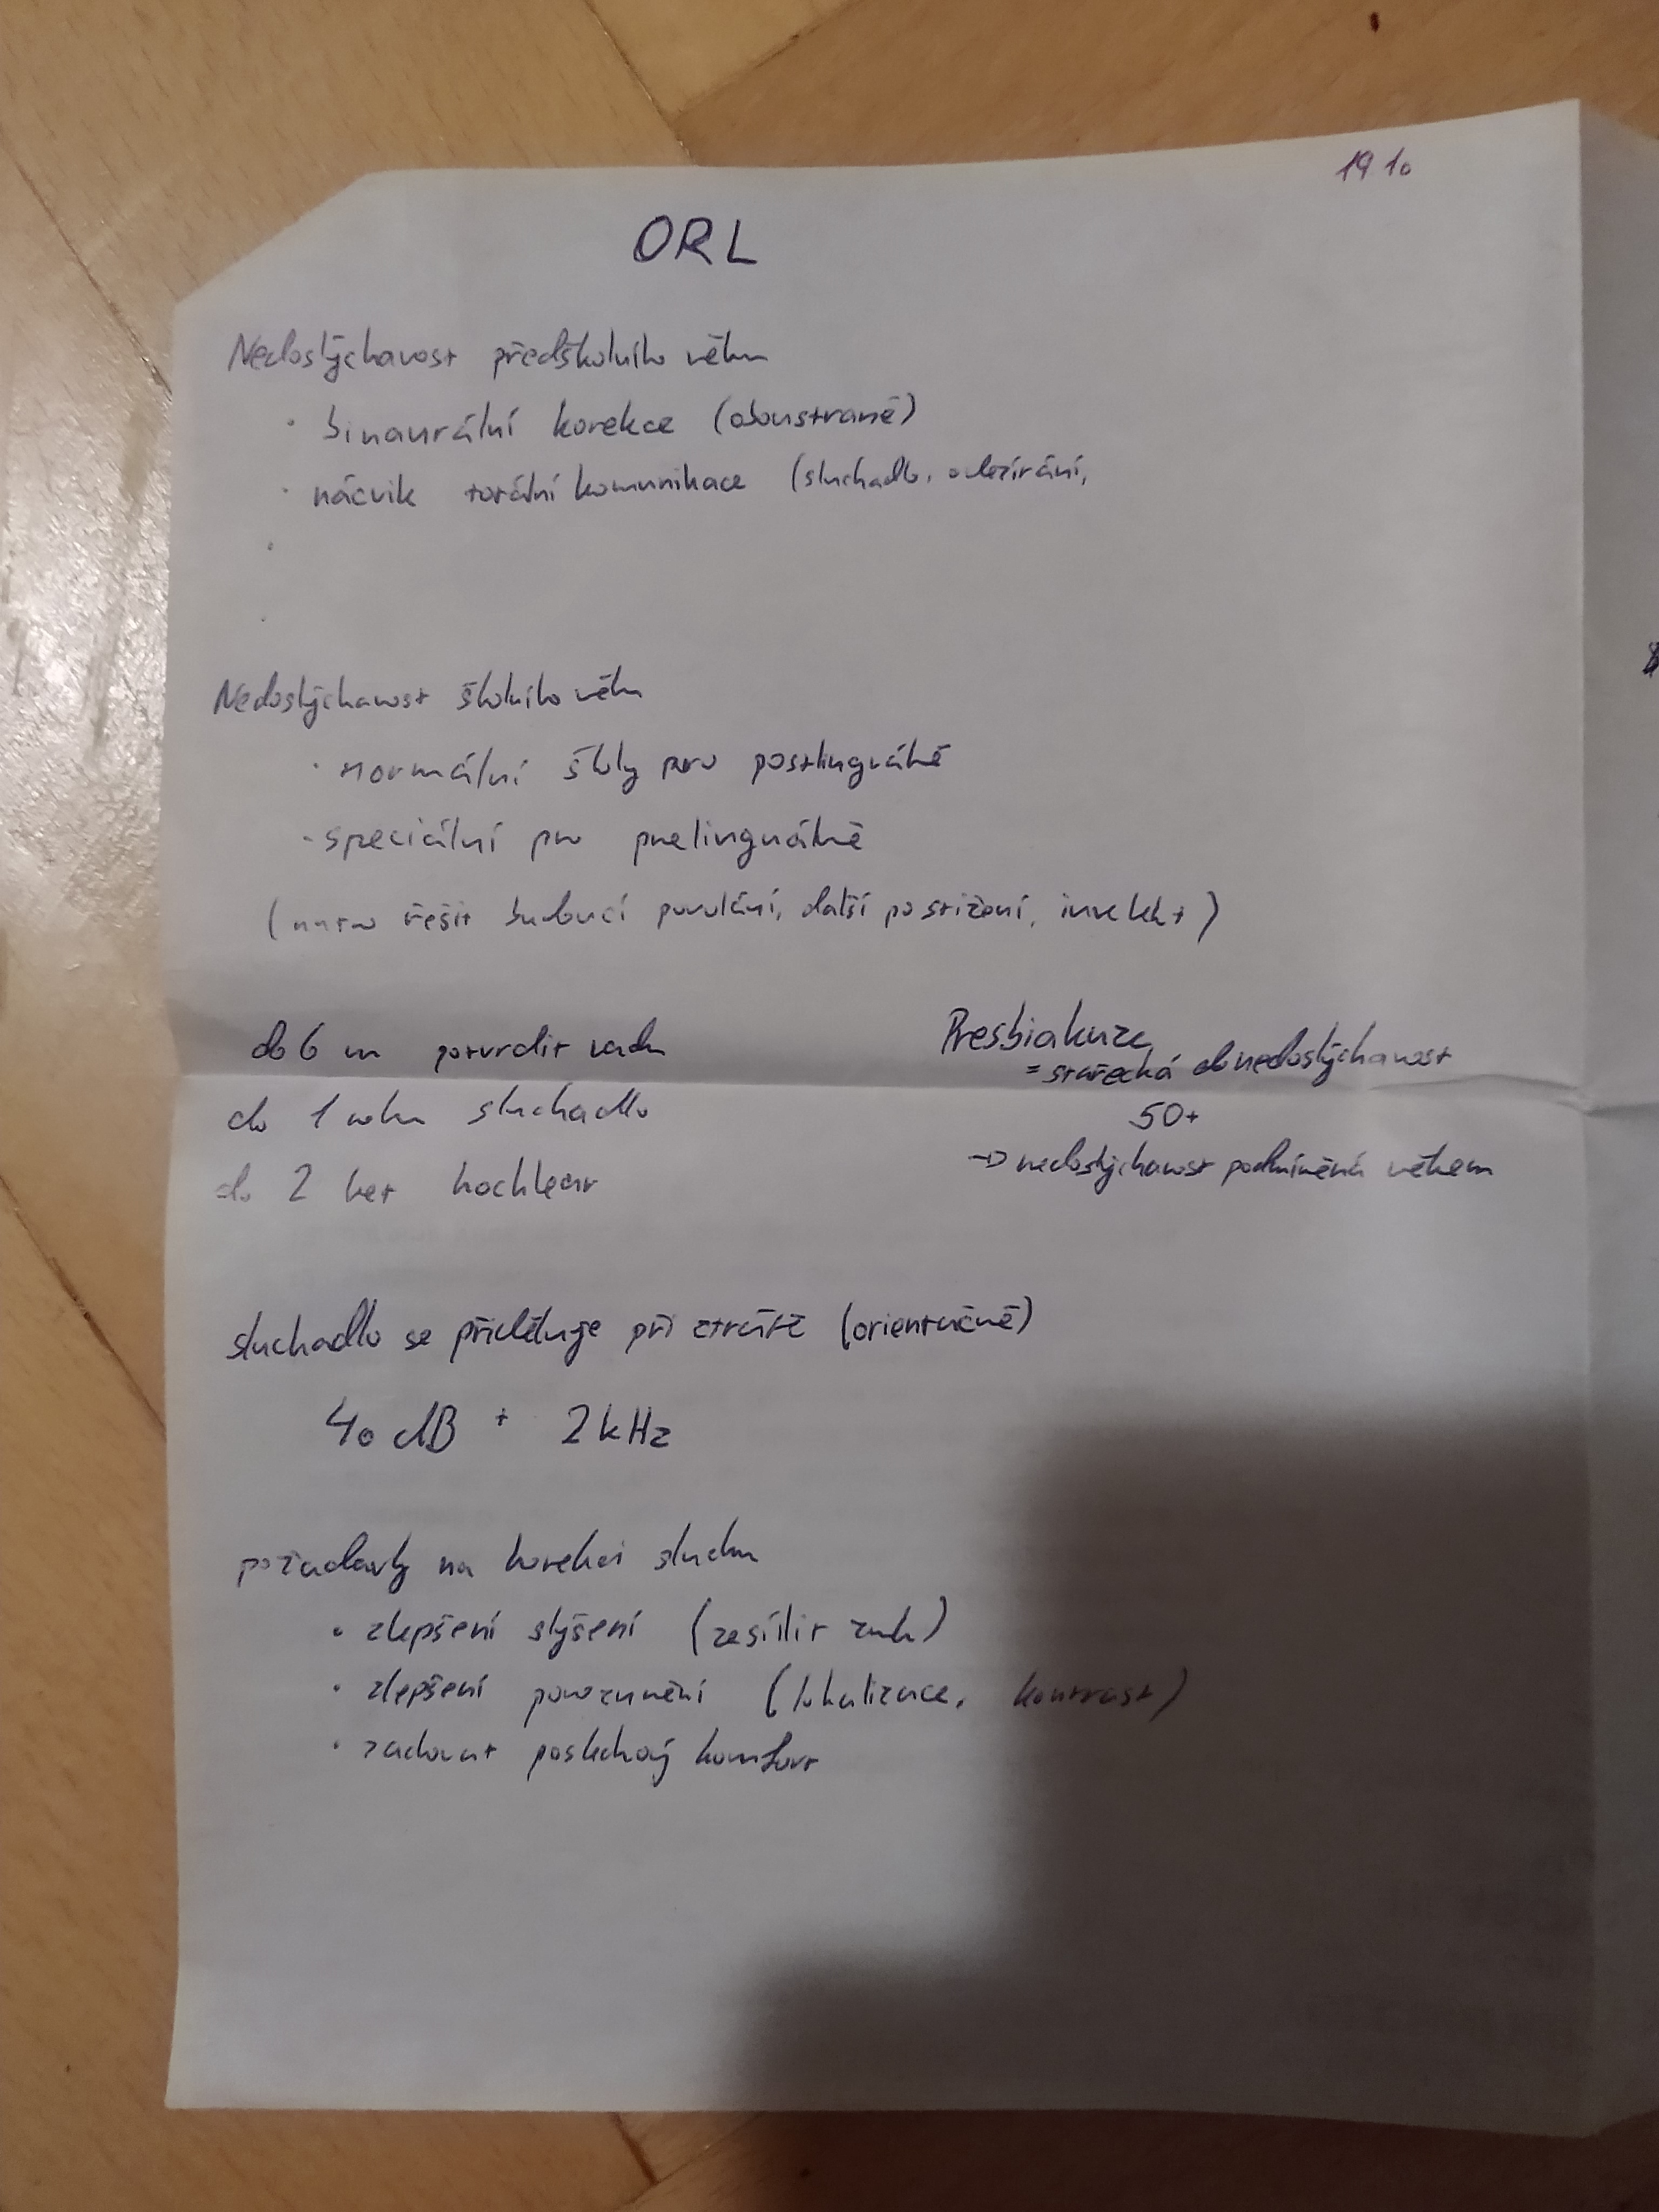 19.10
ORL
Nedoslýchavost předškolního věku
· binaurální korekce (oboustranně)
· nácvik totální komunikace (sluchadlo, odezírání,
·
·
Nedoslýchavost školního věku
· normální školy pro postlinguálně
- speciální pro prelinguálně
(nutno řešit budoucí povolání, další postižení, intelekt)
do 6 m potvrdit vadu
do 1 roku sluchadlo
do 2 let kochlear
Presbiakuze
= stařecká nedoslýchavost
50+
→ nedoslýchavost podmíněná věkem
sluchadlo se přiděluje při ztrátě (orientačně)
40 dB + 2 kHz
požadavky na korekci sluchu
• zlepšení slyšení (zesílit zvuk)
• zlepšení porozumění (lokalizace, kontrast)
• zachovat poslechový komfort